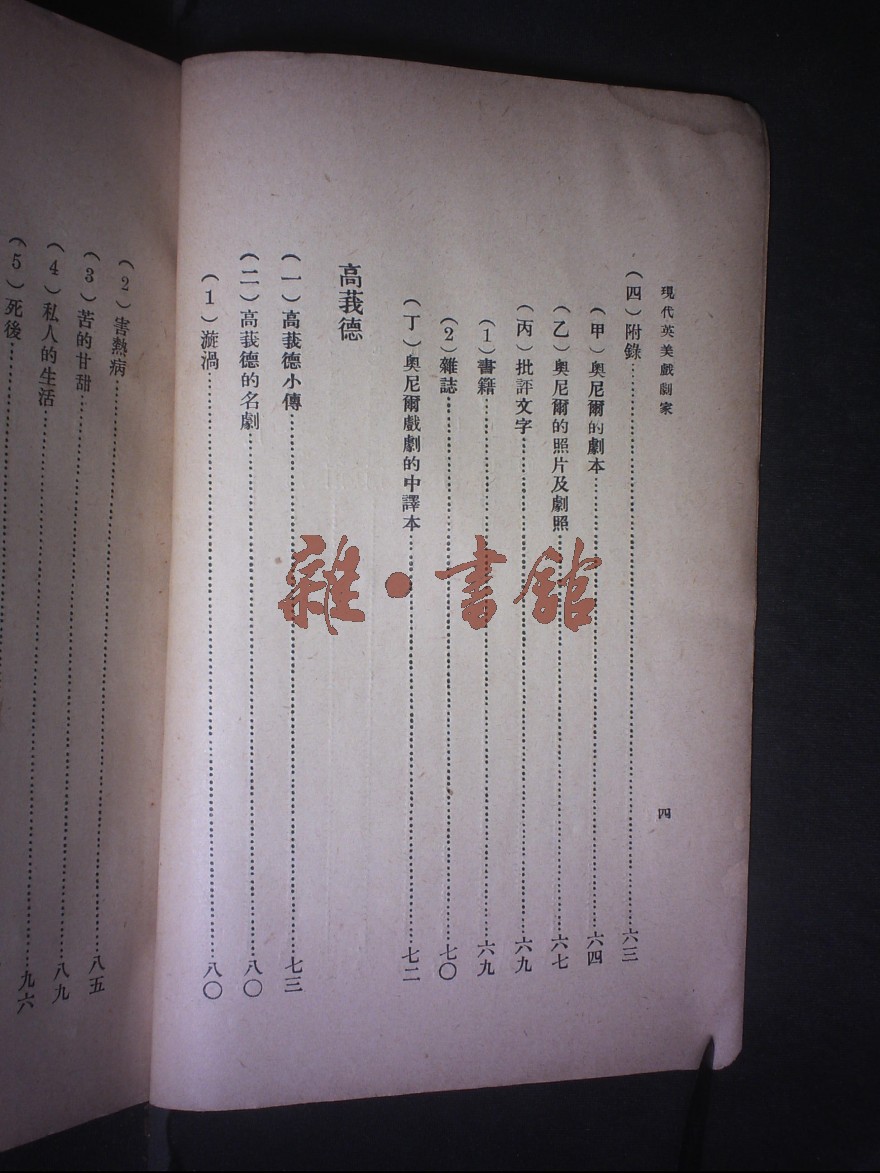 現代英美戲劇家
四
(四)附錄……六三
(甲)奧尼爾的劇本……六四
(乙)奧尼爾的照片及劇照……六七
(丙)批評文字……六九
(1)書籍……六九
(2)雜誌……七〇
(丁)奧尼爾戲劇的中譯本……七二
高莪德
(一)高莪德小傳……七三
(二)高莪德的名劇……八〇
(1)漩渦……八〇
(2)害熱病……八五
(3)苦的甘甜……八九
(4)私人的生活
(5)死後……九六
雜·書館